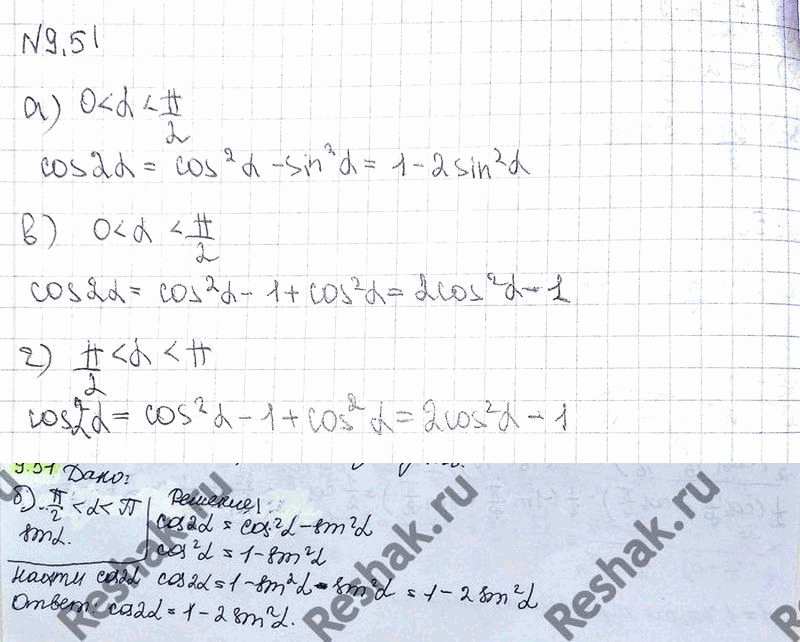 N9.51
а) 0<α<π/2
cos2α = cos²α - sin²α = 1 - 2sin²α
в) 0<α<π/2
cos2α = cos²α - 1 + cos²α = 2cos²α - 1
г) π/2<α<π
cos2α = cos²α - 1 + cos²α = 2cos²α - 1
9.51 Дано:
б) π/2<α<π
sinα.
Решение:
cos2α = cos²α - sin²α
cos²α = 1 - sin²α
Найти cos2α
cos2α = 1 - sin²α - sin²α = 1 - 2sin²α
Ответ: cos2α = 1 - 2sin²α.
Reshak.ru
Reshak.ru
Reshak.ru